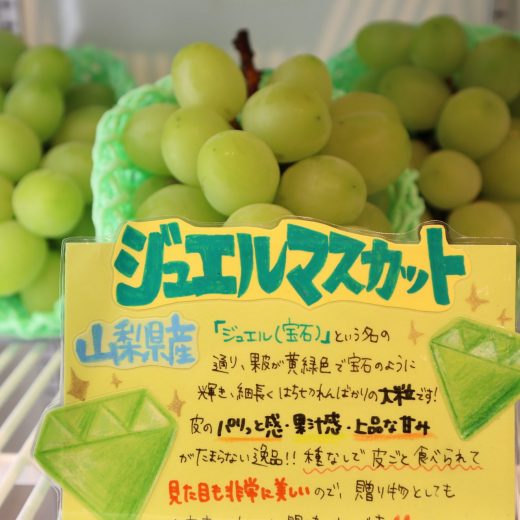 ジュエルマスカット
山梨県産
「ジュエル(宝石)」という名の
通り、果皮が黄緑色で宝石のように
輝き、細長くはちきれんばかりの大粒です!
皮のパリっと感・果汁感・上品な甘み
がたまらない逸品!! 種なしで皮ごと食べられて
見た目も非常に美しいので、贈り物としても